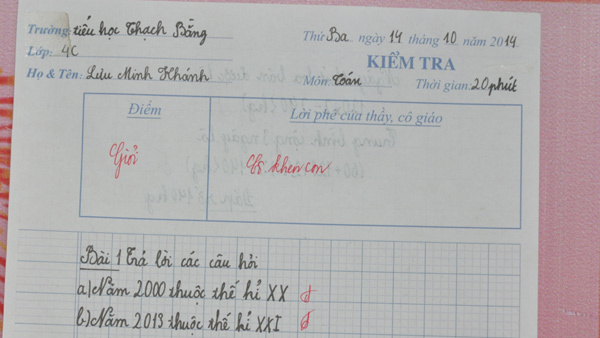 Trường: tiểu học Thạch Bằng Thứ Ba ngày 14 tháng 10 năm 2014
Lớp: 4C KIỂM TRA
Họ & Tên: Lưu Minh Khánh Môn: Toán Thời gian: 20 phút
Điểm Lời phê của thầy, cô giáo
Giỏi Cô khen con
Bài 1 Trả lời các câu hỏi
a) Năm 2000 thuộc thế kỉ XX đ
b) Năm 2013 thuộc thế kỉ XXI đ